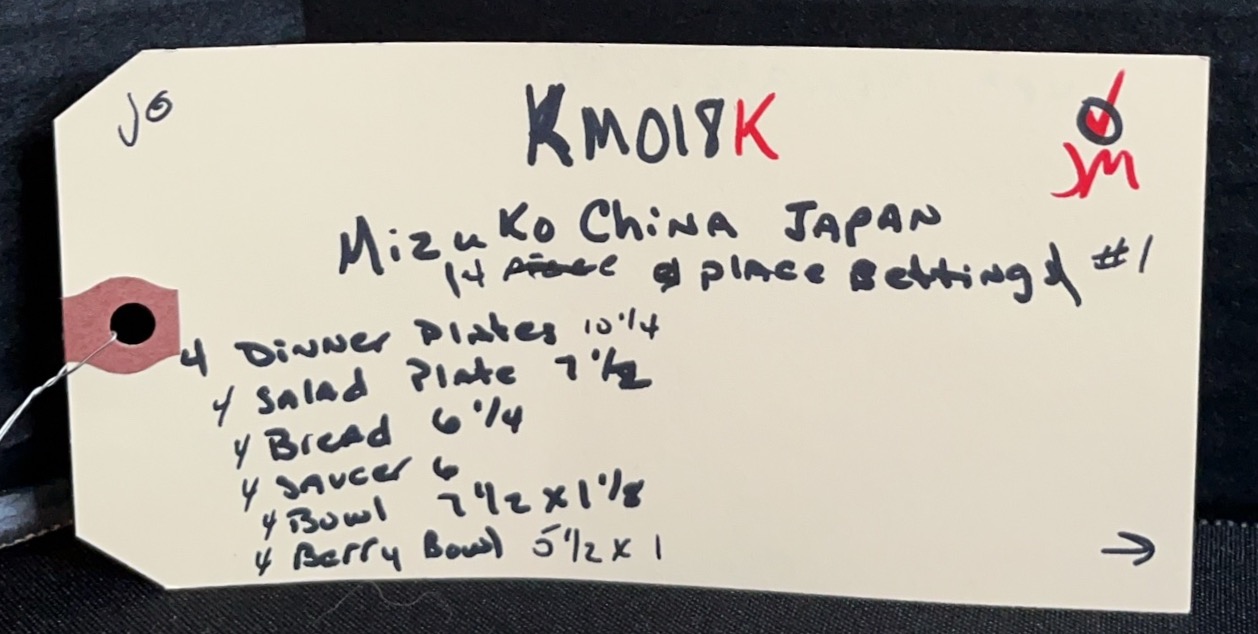 JO
KM018K
JM
Mizuko China JAPAN
14 Piece place Setting #1
4 Dinner Plates 10 1/4
4 Salad Plate 7 1/2
4 Bread 6 1/4
4 Saucer 6
4 Bowl 7 1/2 x 1 1/8
4 Berry Bowl 5 1/2 x 1
→